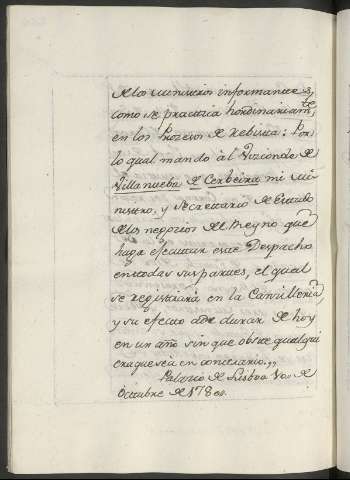 de los ministros informantes,
como se practica hordinariam.te
en los Prozesos de rebista: Por
lo qual mando àl Vizconde de
Villanueba de Cerbeira mi mi
nistro, y Secretario de Estado
de los negocios del Reyno que
haga efecutar este Despacho
en todas sus partes, el qual
se registrará en la Canzilleria
y su efecto ade durar de hoy
en un año sin que obste qualqui
era que sea en contrario.,,
Palacio de Lisboa de
Octubre de 178